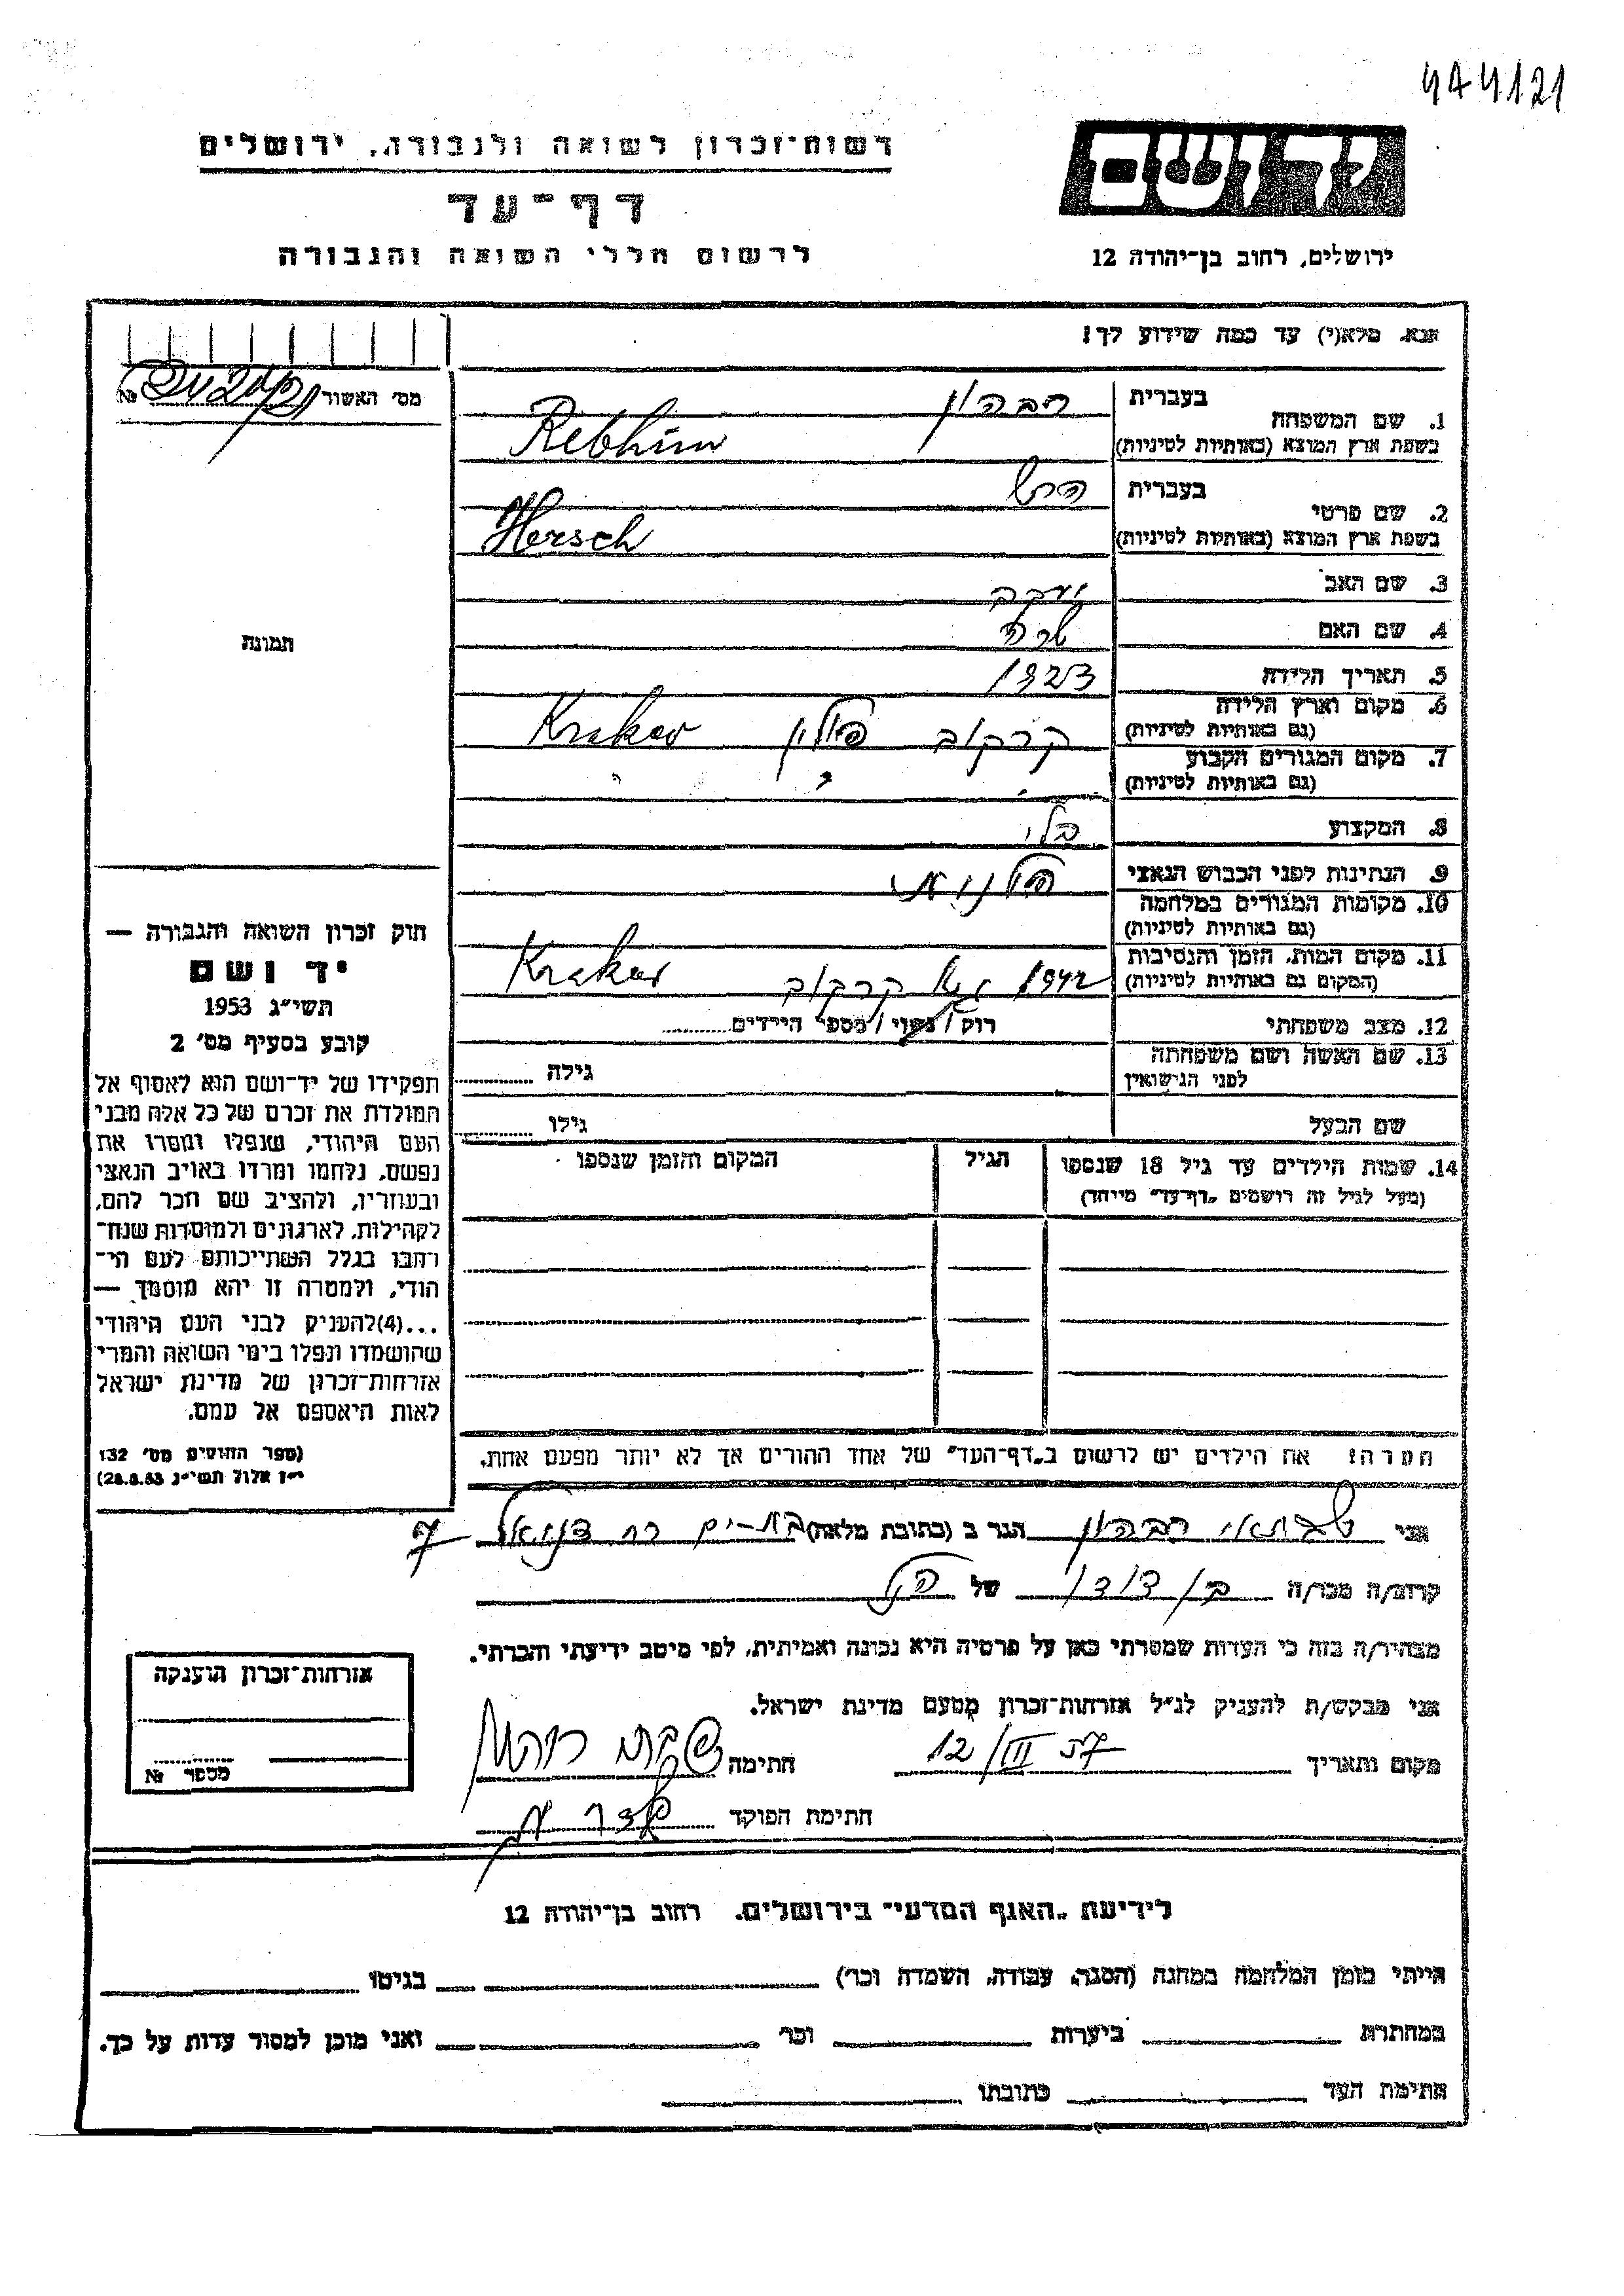 444121
רשות־זכרון לשואה ולגבורה, ירושלים
יד ושם
דף־עד
לרשום חללי השואה והגבורה
ירושלים, רחוב בן־יהודה 12
נא מלא(י) עד כמה שידוע לך!
מס׳ האשור №
1. שם המשפחה
בעברית רבהון
בשפת ארץ המוצא (באותיות לטיניות) Rebhun
2. שם פרטי
בעברית הרש
בשפת ארץ המוצא (באותיות לטיניות) Hersch
3. שם האב יעקב
4. שם האם שרה
5. תאריך הלידה 1923
6. מקום וארץ הלידה (גם באותיות לטיניות) קרקוב פולין Krakov
7. מקום המגורים הקבוע (גם באותיות לטיניות) " " "
8. המקצוע בלי
9. הנתינות לפני הכבוש הנאצי פולנית
10. מקומות המגורים במלחמה (גם באותיות לטיניות)
11. מקום המות, הזמן והנסיבות (המקום גם באותיות לטיניות) 1942 גטו קרקוב Krakov
12. מצב משפחתי רוק / נשוי / מספר הילדים
13. שם האשה ושם משפחתה לפני הנישואין גילה
שם הבעל גילו
14. שמות הילדים עד גיל 18 שנספו הגיל המקום והזמן שנספו
(מעל לגיל זה רושמים „דף־עד" מיוחד)
תמונה
חוק זכרון השואה והגבורה —
יד ושם
תשי״ג 1953
קובע בסעיף מס׳ 2
תפקידו של יד־ושם הוא לאסוף אל
המולדת את זכרם של כל אלה מבני
העם היהודי, שנפלו ומסרו את
נפשם, נלחמו ומרדו באויב הנאצי
ובעוזריו, ולהציב שם וזכר להם,
לקהילות, לארגונים ולמוסדות שנח־
רבו בגלל השתייכותם לעם הי־
הודי, ולמטרה זו יהא מוסמך —
...(4) להעניק לבני העם היהודי
שהושמדו ונפלו בימי השואה והמרי
אזרחות־זכרון של מדינת ישראל
לאות היאספם אל עמם.
(ספר החוקים מס׳ 132
י״ז אלול תשי״ג 28.8.53)
הערה! את הילדים יש לרשום ב„דף־העד" של אחד ההורים אך לא יותר מפעם אחת.
אני שבתאי רבהון הגר ב (כתובת מלאה) בת-ים רח דניאל 7
קרוב/ה מכר/ה בן דודו של הנ"ל
מצהיר/ה בזה כי העדות שמסרתי כאן על פרטיה היא נכונה ואמיתית, לפי מיטב ידיעתי והכרתי.
אני מבקש/ת להעניק לנ״ל אזרחות־זכרון מטעם מדינת ישראל.
מקום ותאריך 12/III 57 חתימה
חתימת הפוקד
אזרחות־זכרון הוענקה
מספר №
לידיעת „האגף המדעי" בירושלים, רחוב בן־יהודה 12
הייתי בזמן המלחמה במחנה (הסגה, עבודה, השמדה וכו׳) בגיטו
במחתרת ביערות וכו׳ ואני מוכן למסור עדות על כך.
חתימת העד כתובתו